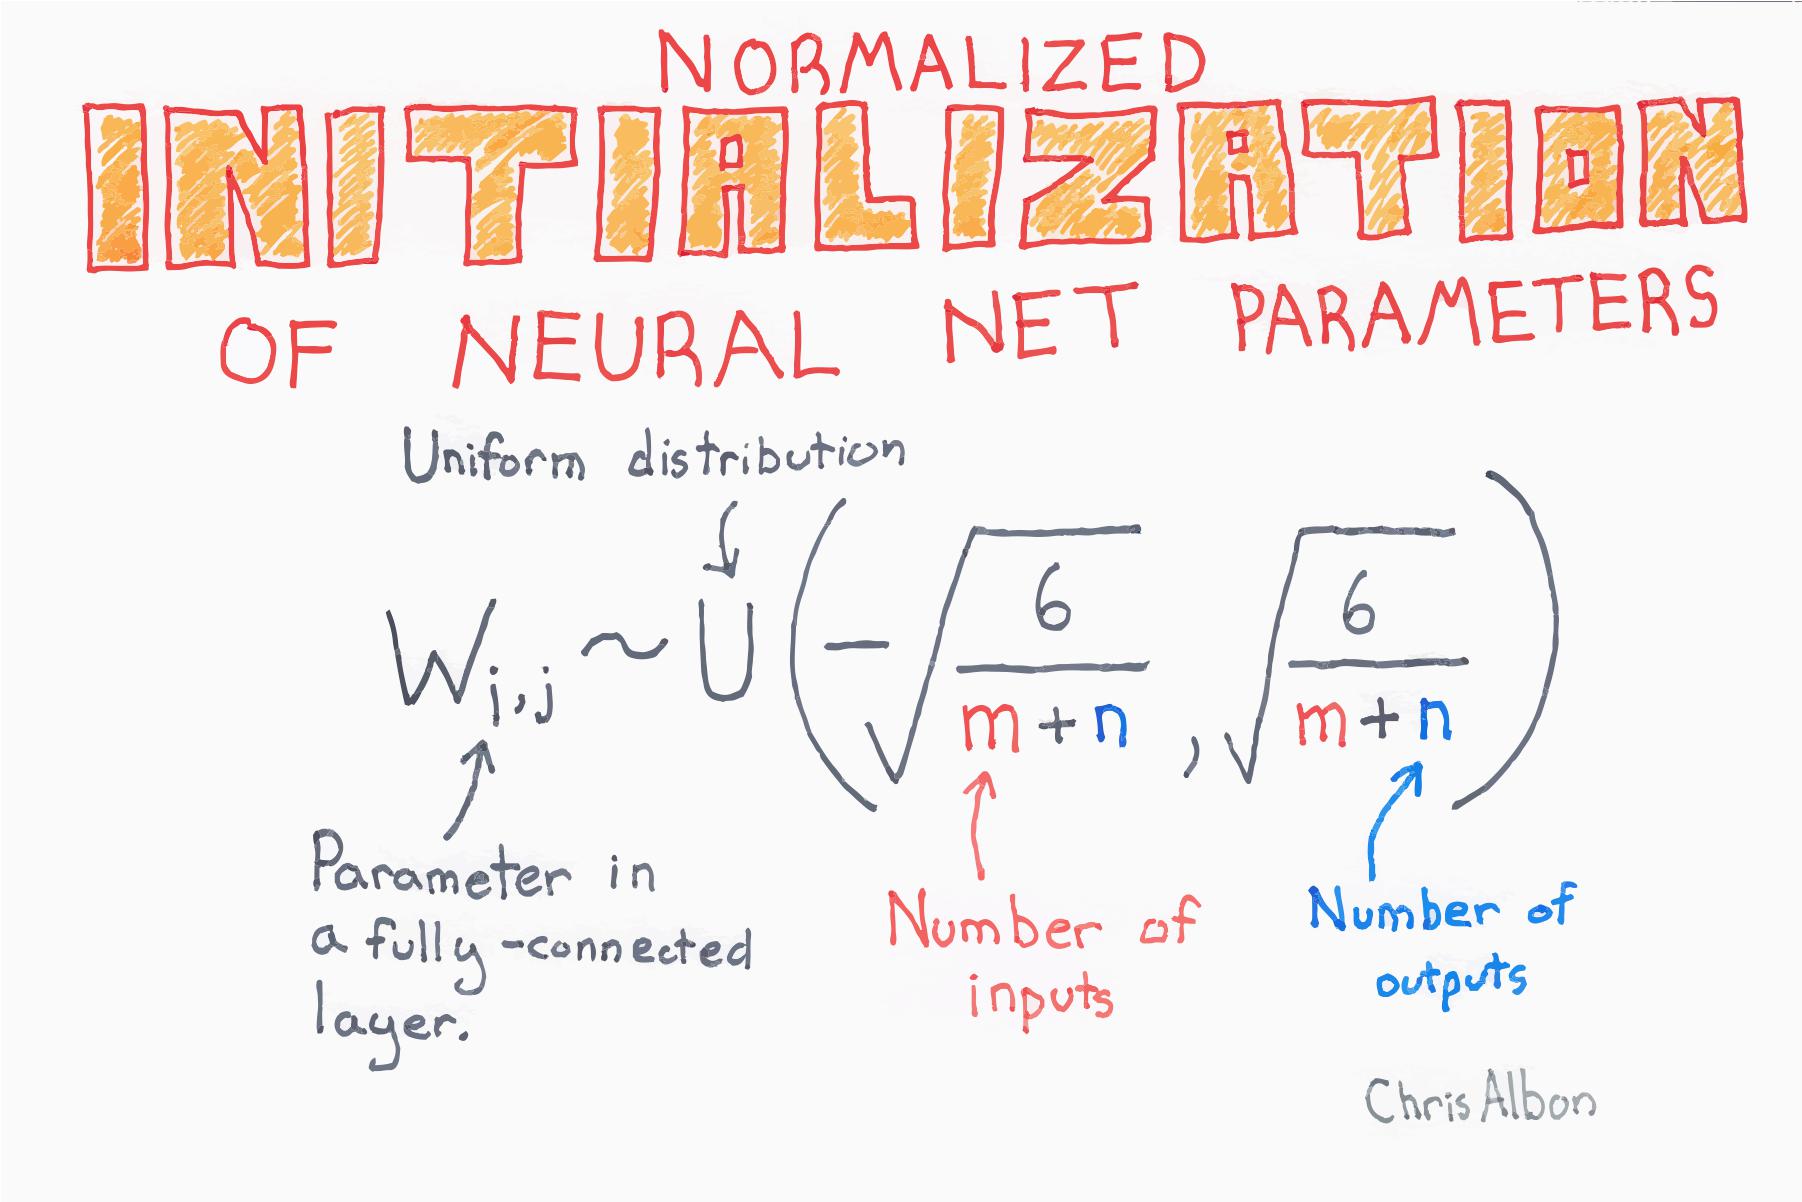 NORMALIZED
INITIALIZATION
OF NEURAL NET PARAMETERS
Uniform distribution
W_{i,j} ~ U ( -√(6/(m+n)) , √(6/(m+n)) )
Parameter in
a fully-connected
layer.
Number of
inputs
Number of
outputs
Chris Albon